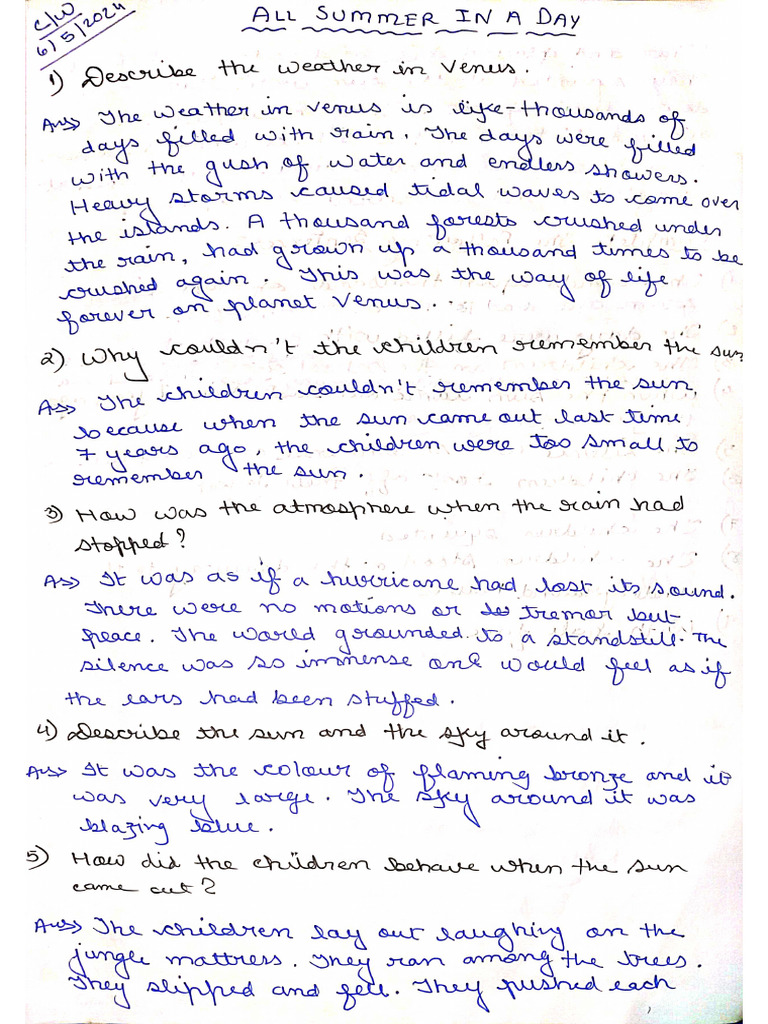 C/W
6/5/2024
ALL SUMMER IN A DAY
1) Describe the weather in Venus.
Ans) The weather in Venus is like-thousands of
days filled with rain. The days were filled
with the gush of water and endless showers.
Heavy storms caused tidal waves to come over
the islands. A thousand forests crushed under
the rain, had grown up a thousand times to be
crushed again. This was the way of life
forever on planet Venus..
2) Why couldn't the children remember the sun
As) The children couldn't remember the sun,
because when the sun came out last time
7 years ago, the children were too small to
remember the sun.
3) How was the atmosphere when the rain had
stopped?
As) It was as if a hurricane had lost its sound.
There were no motions or tremor but
peace. The world grounded to a standstill. The
silence was so immense one would feel as if
the ears had been stuffed.
4) Describe the sun and the sky around it.
Ans) It was the colour of flaming bronze and it
was very large. The sky around it was
blazing blue.
5) How did the children behave when the sun
came out?
Ans) The children lay out laughing on the
jungle mattress. They ran among the trees.
They slipped and fell. They pushed each